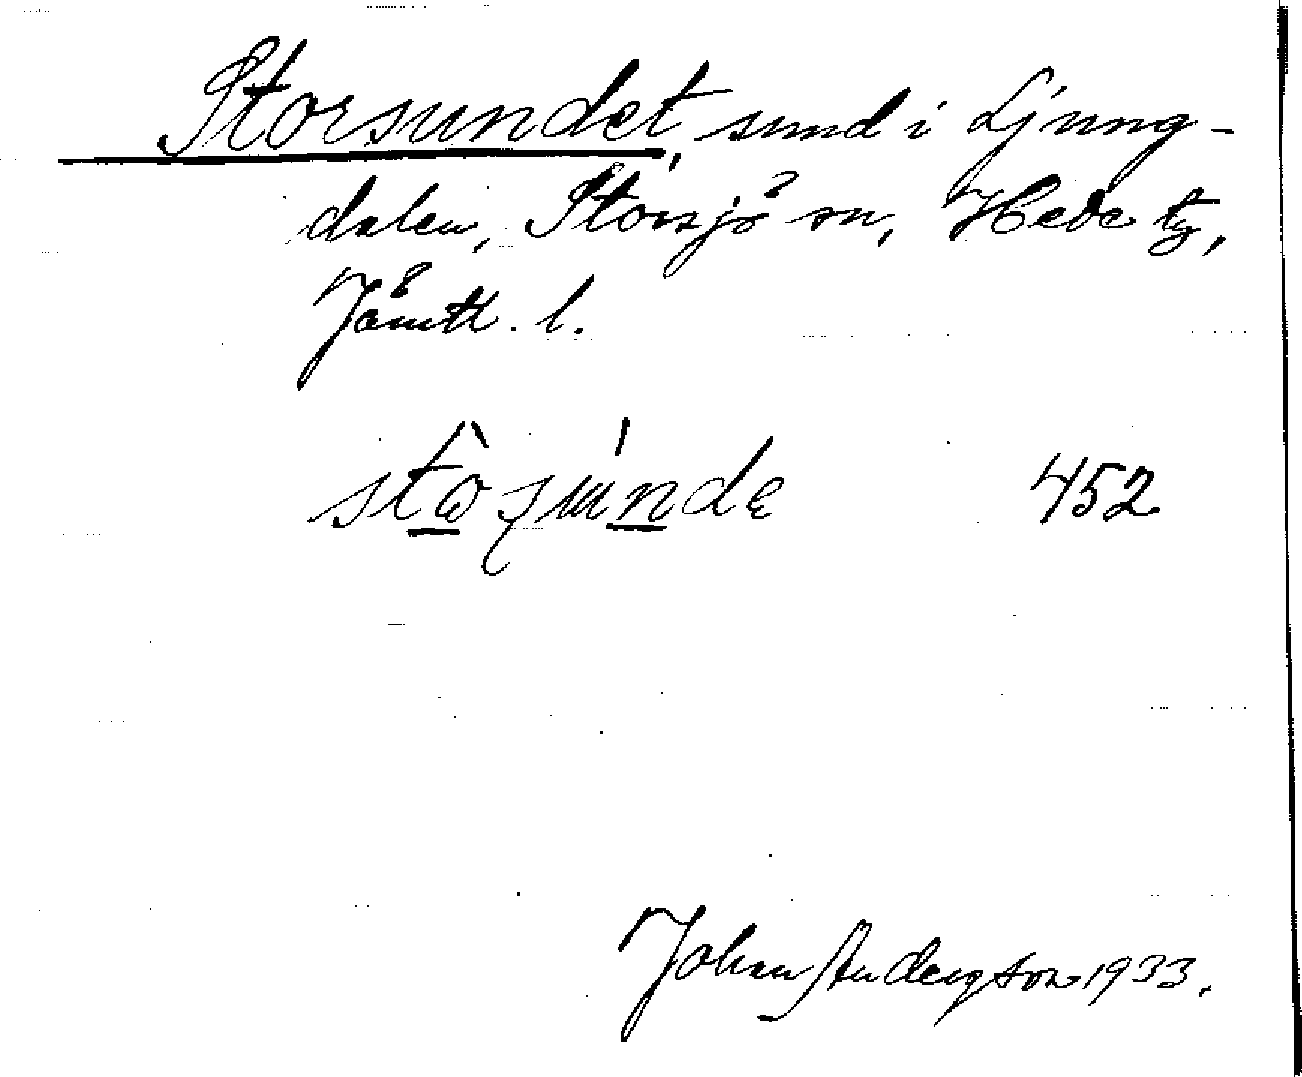 Storsundet, sund i Ljung-
dalen, Storsjö sn, Hede tg,
Jämtl. l.
stôsúndę 452
Johan Anderson 1933.